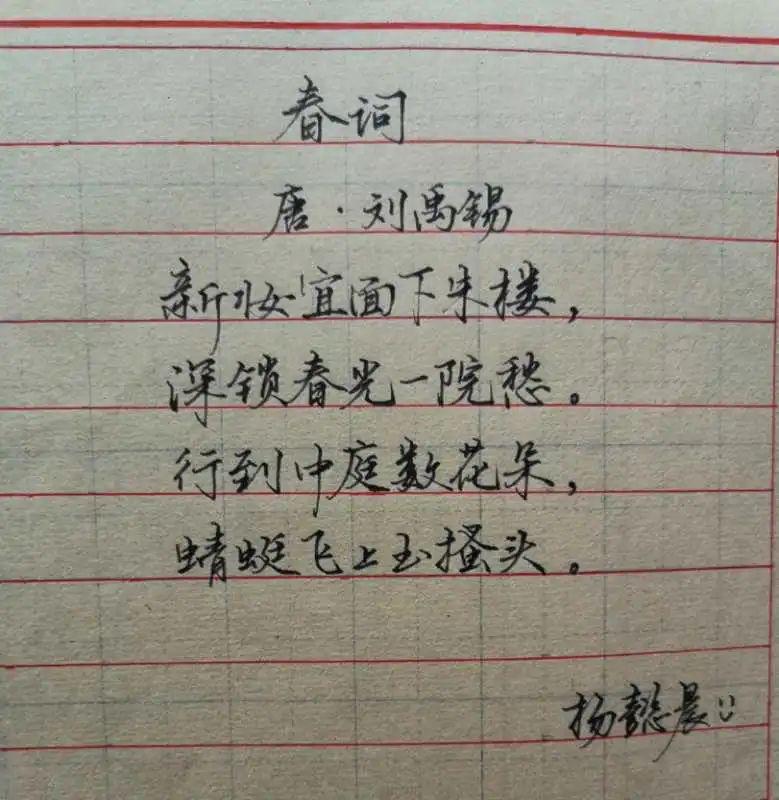 春词
唐·刘禹锡
新妆宜面下朱楼，
深锁春光一院愁。
行到中庭数花朵，
蜻蜓飞上玉搔头。
杨懿晨